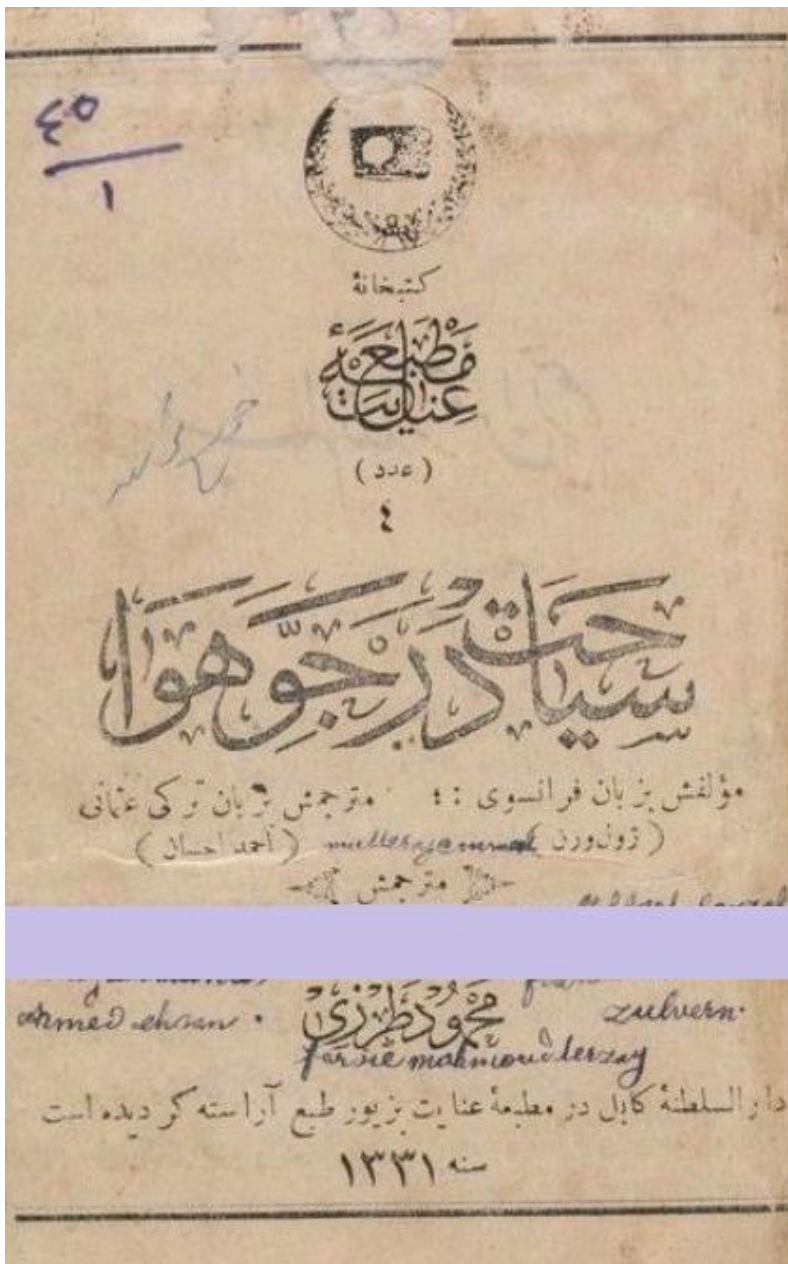 ٤٥
١
كتبخانۀ
مطبعۀ
عنایت
(عدد)
٤
سیاحت در جوّ هوا
مؤلفش بزبان فرانسوی : : مترجمش بزبان ترکی عثمانی
(ژول‌ورن) (احمد احسان)
مترجمش
محمود طرزی
ahmed ehsan. zulvern.
farsie mahmoud terzay
دارالسلطنۀ کابل در مطبعۀ عنایت بزیور طبع آراسته گردیده است
سنه ١٣٣١